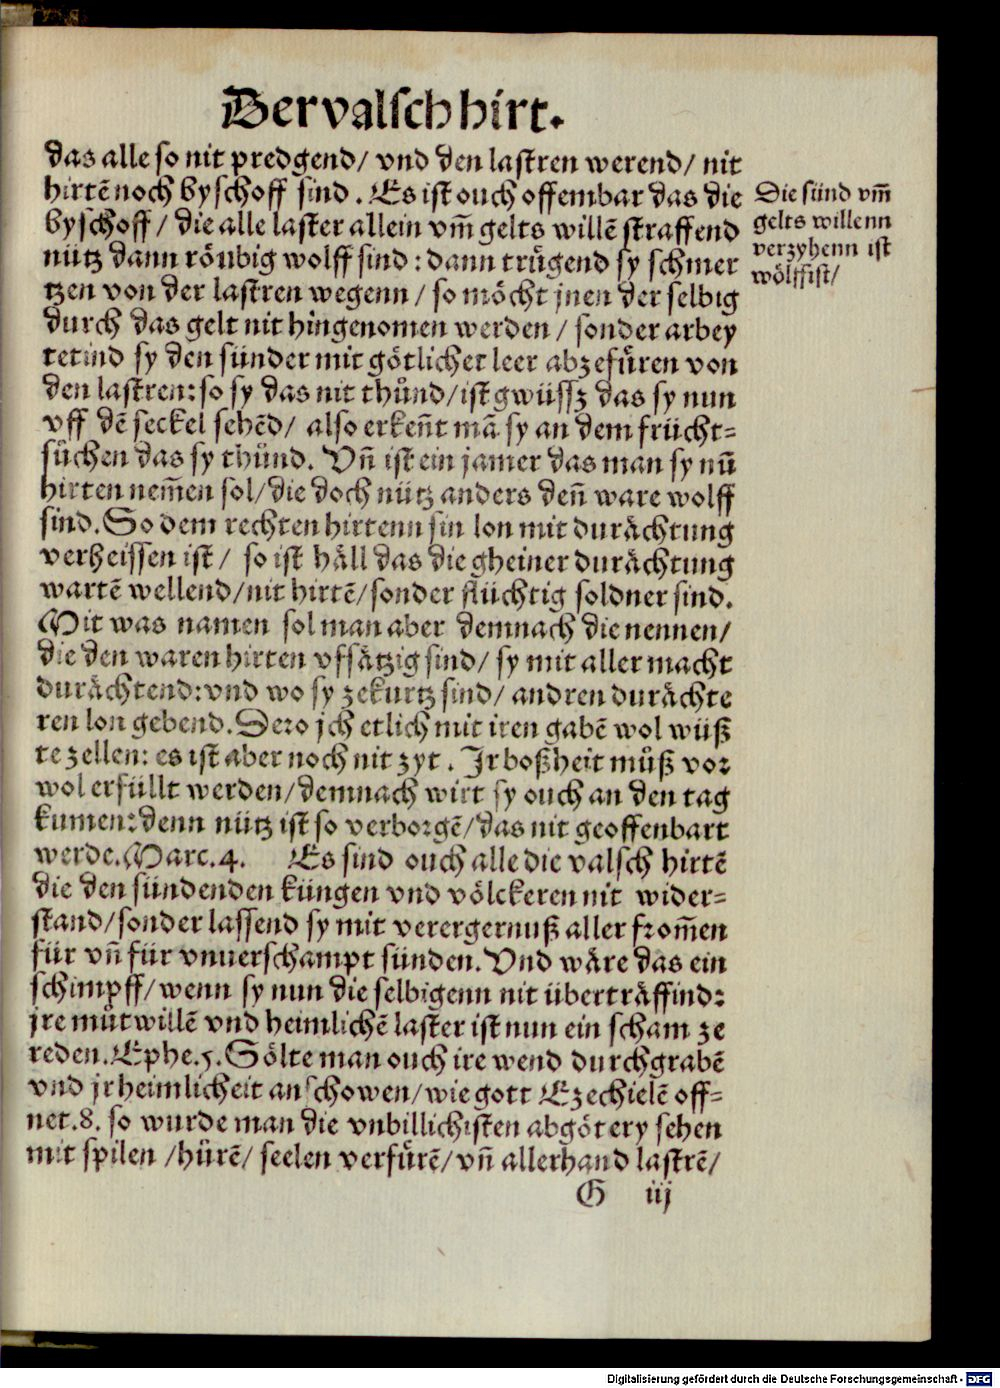 Der valsch hirt.
das alle so nit predgend/ vnd den lastren werend/ nit
hirtē noch byschoff sind. Es ist ouch offembar das die
byschoff/ die alle laster allein vm̄ gelts willē straffend
nütz dann röubig wolff sind: dann trügend sy schmer
tzen von der lastren wegenn/ so möcht jnen der selbig
durch das gelt nit hingenomen werden/ sonder arbey
tetind sy den sünder mit götlicher leer abzefüren von
den lastren: so sy das nit thůnd/ ist gwüssz das sy nun
vff dē seckel sehēd/ also erkeñt mā sy an dem frücht-
sůchen das sy thůnd. Vñ ist ein jamer das man sy nū
hirten nem̄en sol/ die doch nütz anders deñ ware wolff
sind. So dem rechten hirtenn sin lon mit durächtung
verheissen ist/ so ist häll das die gheiner durächtung
wartē wellend/ nit hirtē/ sonder flüchtig soldner sind.
Mit was namen sol man aber demnach die nennen/
die den waren hirten vfsätzig sind/ sy mit aller macht
durächtend: vnd wo sy zekurtz sind/ andren durächte
ren lon gebend. Dero jch etlich mit iren gabē wol wüß
te zellen: es ist aber noch nit zyt. Jr boßheit můß vor
wol erfüllt werden/ demnach wirt sy ouch an den tag
kumen: denn nütz ist so verborgē/ das nit geoffenbart
werde. Marc. 4. Es sind ouch alle die valsch hirtē
die den sündenden küngen vnd völckeren nit wider-
stand/ sonder lassend sy mit verergernuß aller from̄en
für vñ für vnuerschampt sünden. Vnd wäre das ein
schimpff/ wenn sy nun die selbigenn nit überträffind:
jre můtwillē vnd heimlichē laster ist nun ein scham ze
reden. Ephe. 5. Sölte man ouch ire wend durchgrabē
vnd jr heimlicheit anschowen/ wie gott Ezechielē off-
net. 8. so wurde man die vnbillichisten abgötery sehen
mit spilen/ hůrē/ seelen verfürē/ vñ allerhand lastrē/
G iij
Die sünd vm̄
gelts willenn
verzyhenn ist
wölffist/
Digitalisierung gefördert durch die Deutsche Forschungsgemeinschaft - DFG